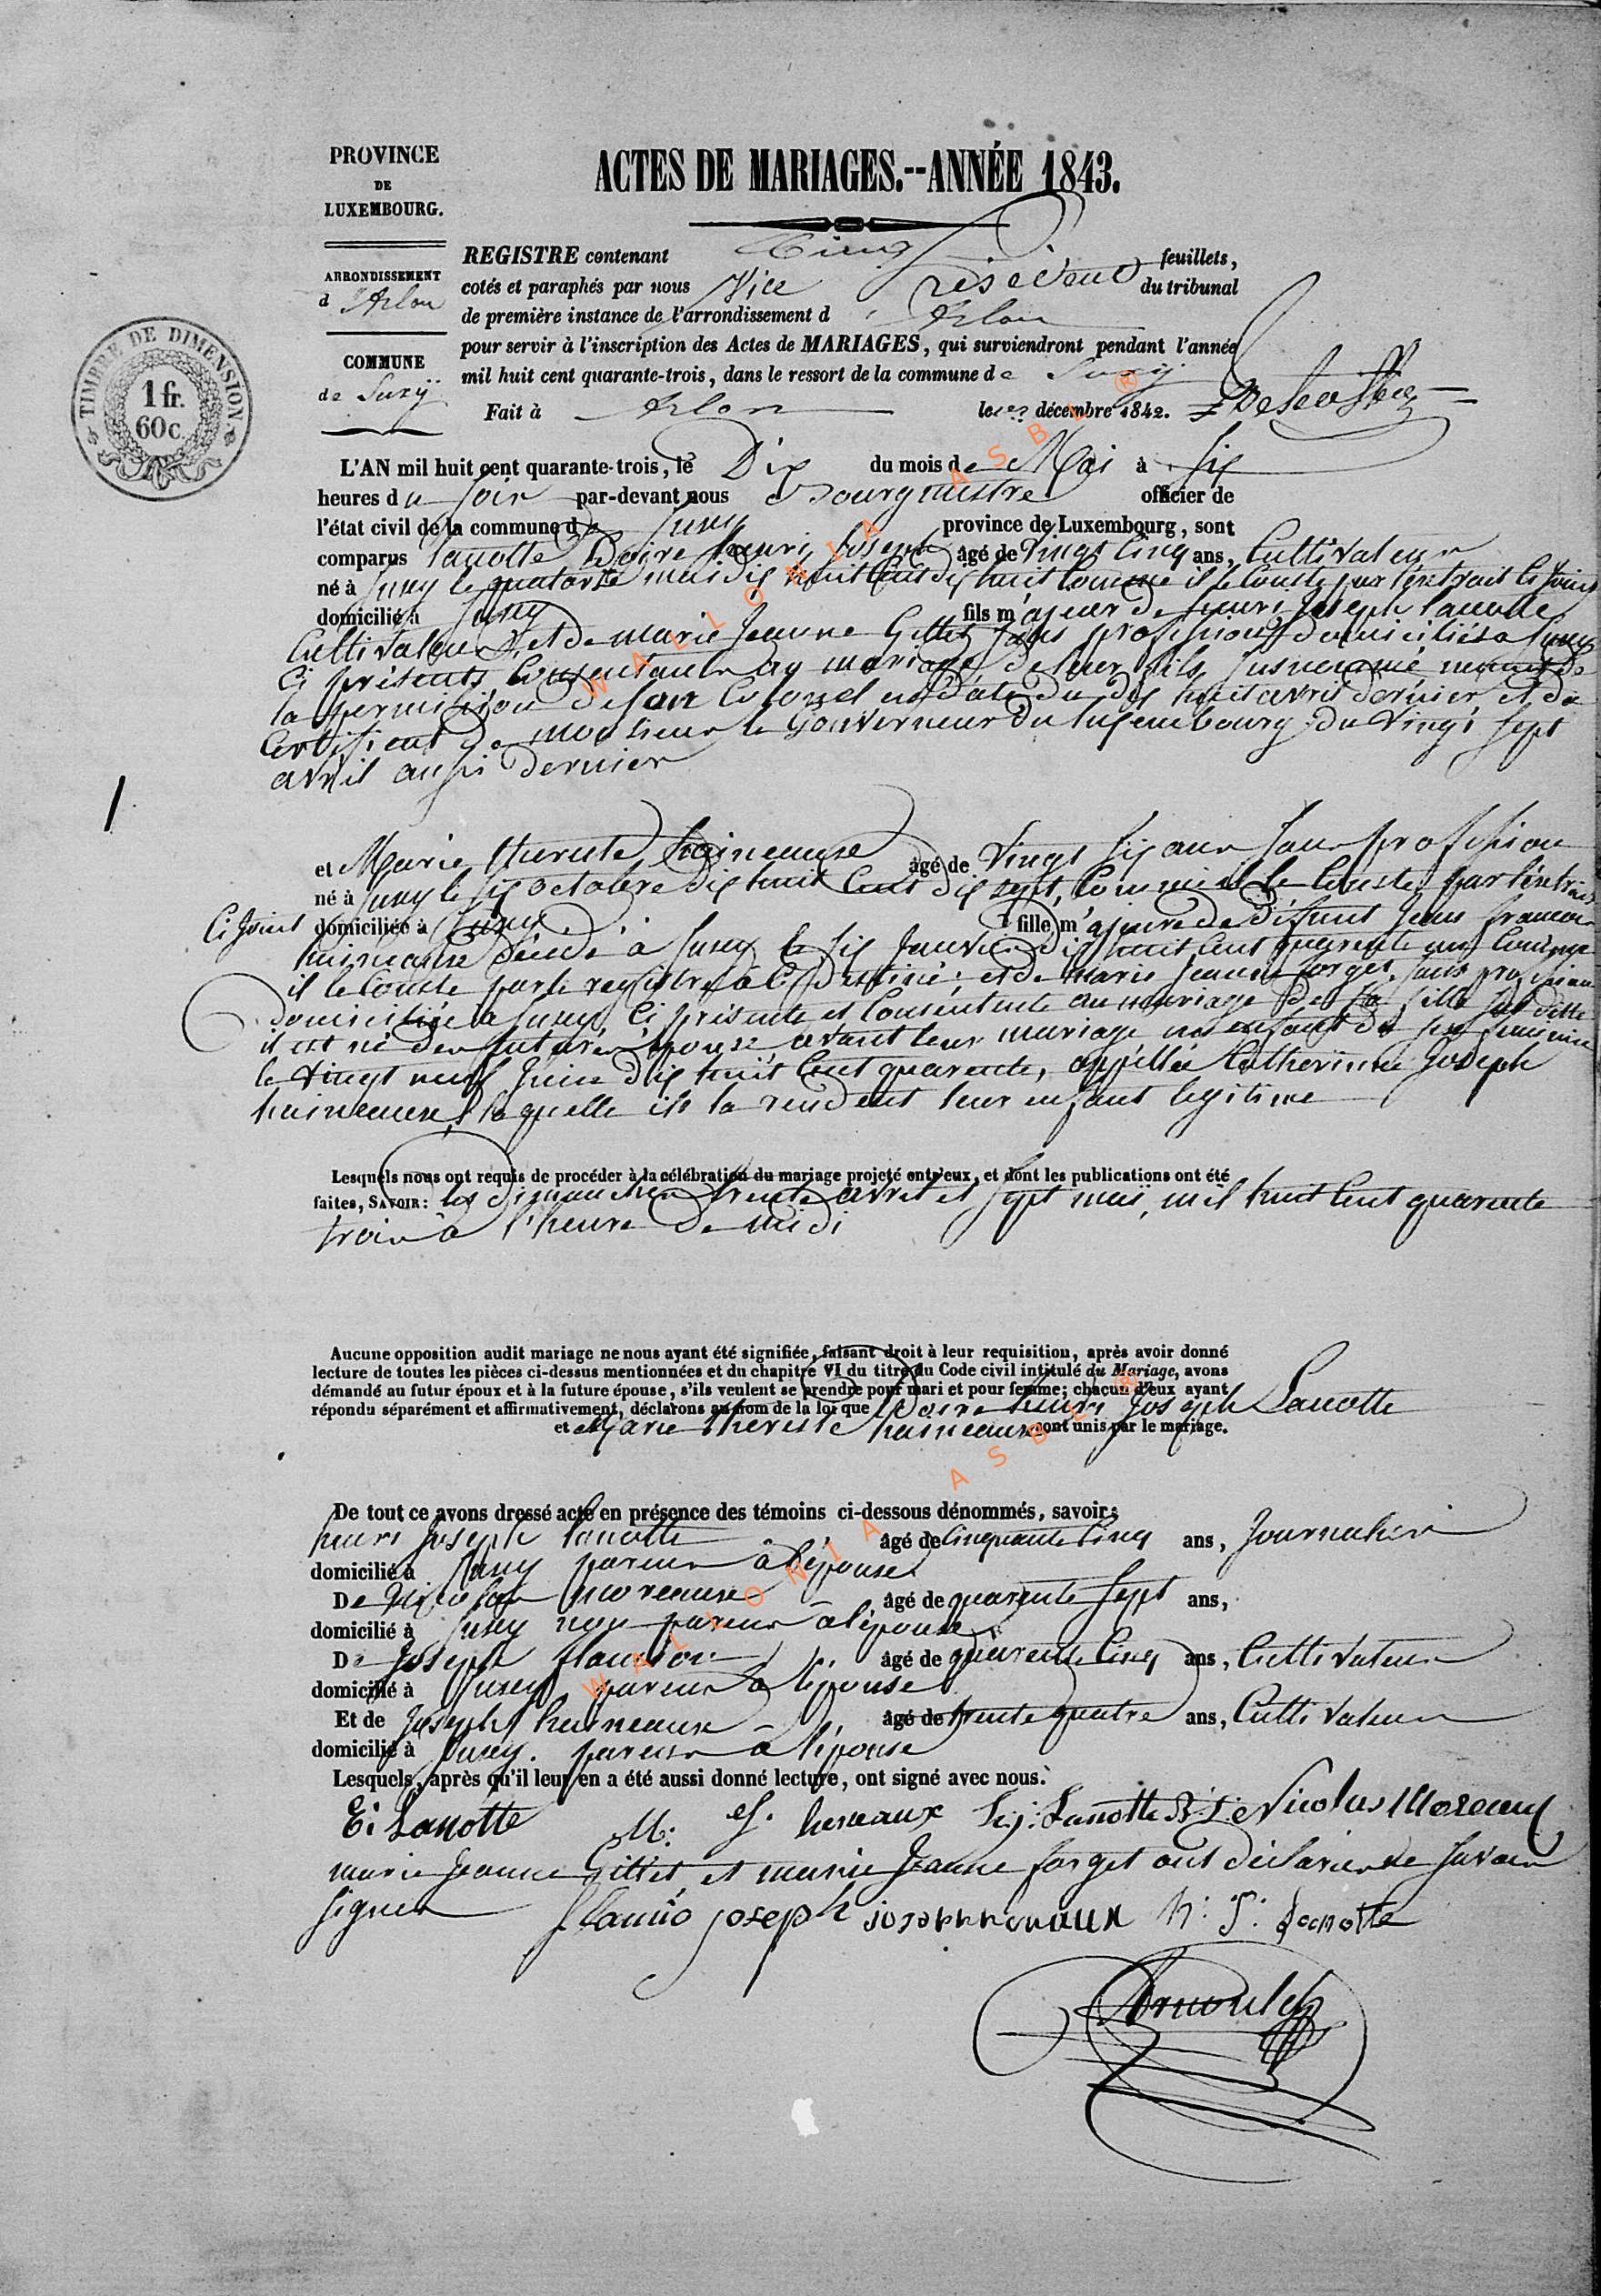 PROVINCE
DE
LUXEMBOURG.
ACTES DE MARIAGES.--ANNÉE 1843.
ARRONDISSEMENT
d'Arlon
COMMUNE
de Suxÿ
TIMBRE DE DIMENSION.
1 fr.
60 c.
REGISTRE contenant Cinq feuillets,
cotés et paraphés par nous Vice Président du tribunal
de première instance de l'arrondissement d'Arlon
pour servir à l'inscription des Actes de MARIAGES, qui surviendront pendant l'année
mil huit cent quarante-trois, dans le ressort de la commune de Suxÿ
Fait à Arlon le décembre 1842.
L'AN mil huit cent quarante-trois, le Dix du mois de Mai à six
heures du soir par-devant nous Bourgmestre officier de
l'état civil de la commune de Suxy province de Luxembourg, sont
comparus Lanotte henri Joseph âgé de Vingt Cinq ans, Cultivateur
né à Suxy le quatorze mai dix huit Cent dix huit Comme il le Conste par l'extrait Ci Joint
domicilié à Suxy fils majeur de henri Joseph Lanotte
Cultivateur, et de marie Jeanne Gillet sans profession domiciliés a Suxy
Ci présents Consentants au mariage de leur fils susnommé
la permission de son Colonel en date du dix huit avril dernier et du
Certificat de monsieur le Gouverneur du luxembourg du Vingt sept
avril aussi dernier
et Marie therese haineaux âgé de Vingt six ans sans profession
né à Suxy le six octobre dix huit Cent dix sept, Comme il le Conste par l'extrait
Ci Joint domiciliée à Suxy fille majeure de Défunt Jean francois
haineaux décédé à Suxy le six Janvier dix huit Cent quarente un Comme
il le Conste par le registre à Ce destiné; et de marie Jeanne forget sans profession
domiciliée a Suxy Ci présente et Consentente au mariage de sa fille sus dite
il est né des futures époux avant leur mariage un enfant du sex feminin
le Vingt neuf Juin dix huit Cent quarente, appellée Catherinne Joseph
haineaux, laquelle ils la rendent leur enfant legitime
Lesquels nous ont requis de procéder à la célébration du mariage projeté entr'eux, et dont les publications ont été
faites, SAVOIR: les dimanches trente avril et sept mai, mil huit Cent quarente
trois à l'heure de midi
Aucune opposition audit mariage ne nous ayant été signifiée, faisant droit à leur requisition, après avoir donné
lecture de toutes les pièces ci-dessus mentionnées et du chapitre VI du titre du Code civil intitulé du Mariage, avons
démandé au futur époux et à la future épouse, s'ils veulent se prendre pour mari et pour femme; chacun d'eux ayant
répondu séparément et affirmativement, déclarons au nom de la loi que henri Joseph Lanotte
et Marie therese haineaux sont unis par le mariage.
De tout ce avons dressé acte en présence des témoins ci-dessous dénommés, savoir:
henri Joseph Lanotte âgé de Cinquante Cinq ans, Journalier
domicilié à Suxy parent à l'épouse
De Nicolas moreaux âgé de quarente sept ans,
domicilié à Suxy non parent à l'épouse
De Joseph flamion âgé de quarente Cinq ans, Cultivateur
domicilié à Suxy parent à l'épouse
Et de Joseph haineaux âgé de trente quatre ans, Cultivateur
domicilié à Suxy. parent à l'épouse
Lesquels, après qu'il leur en a été aussi donné lecture, ont signé avec nous.
Lanotte heneaux Lanotte Nicolas Moreaux
marie Jeanne Gillet et marie Jeanne forget ont déclarée ne savoir
signer flamio joseph H: J: Lanotte
WALLONIA ASBL ®
WALLONIA ASBL ®